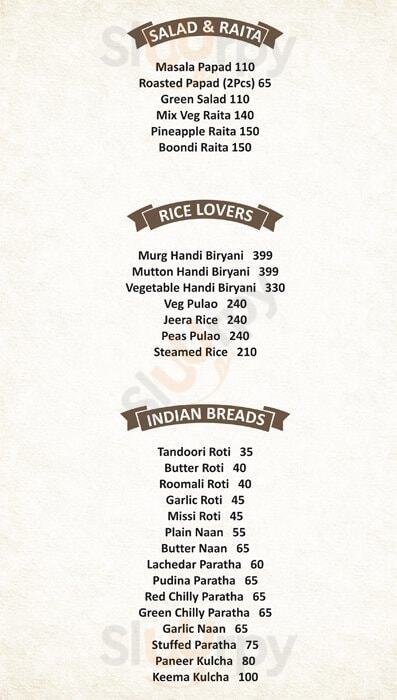 SALAD & RAITA
Masala Papad 110
Roasted Papad (2Pcs) 65
Green Salad 110
Mix Veg Raita 140
Pineapple Raita 150
Boondi Raita 150
RICE LOVERS
Murg Handi Biryani 399
Mutton Handi Biryani 399
Vegetable Handi Biryani 330
Veg Pulao 240
Jeera Rice 240
Peas Pulao 240
Steamed Rice 210
INDIAN BREADS
Tandoori Roti 35
Butter Roti 40
Roomali Roti 40
Garlic Roti 45
Missi Roti 45
Plain Naan 55
Butter Naan 65
Lachedar Paratha 60
Pudina Paratha 65
Red Chilly Paratha 65
Green Chilly Paratha 65
Garlic Naan 65
Stuffed Paratha 75
Paneer Kulcha 80
Keema Kulcha 100